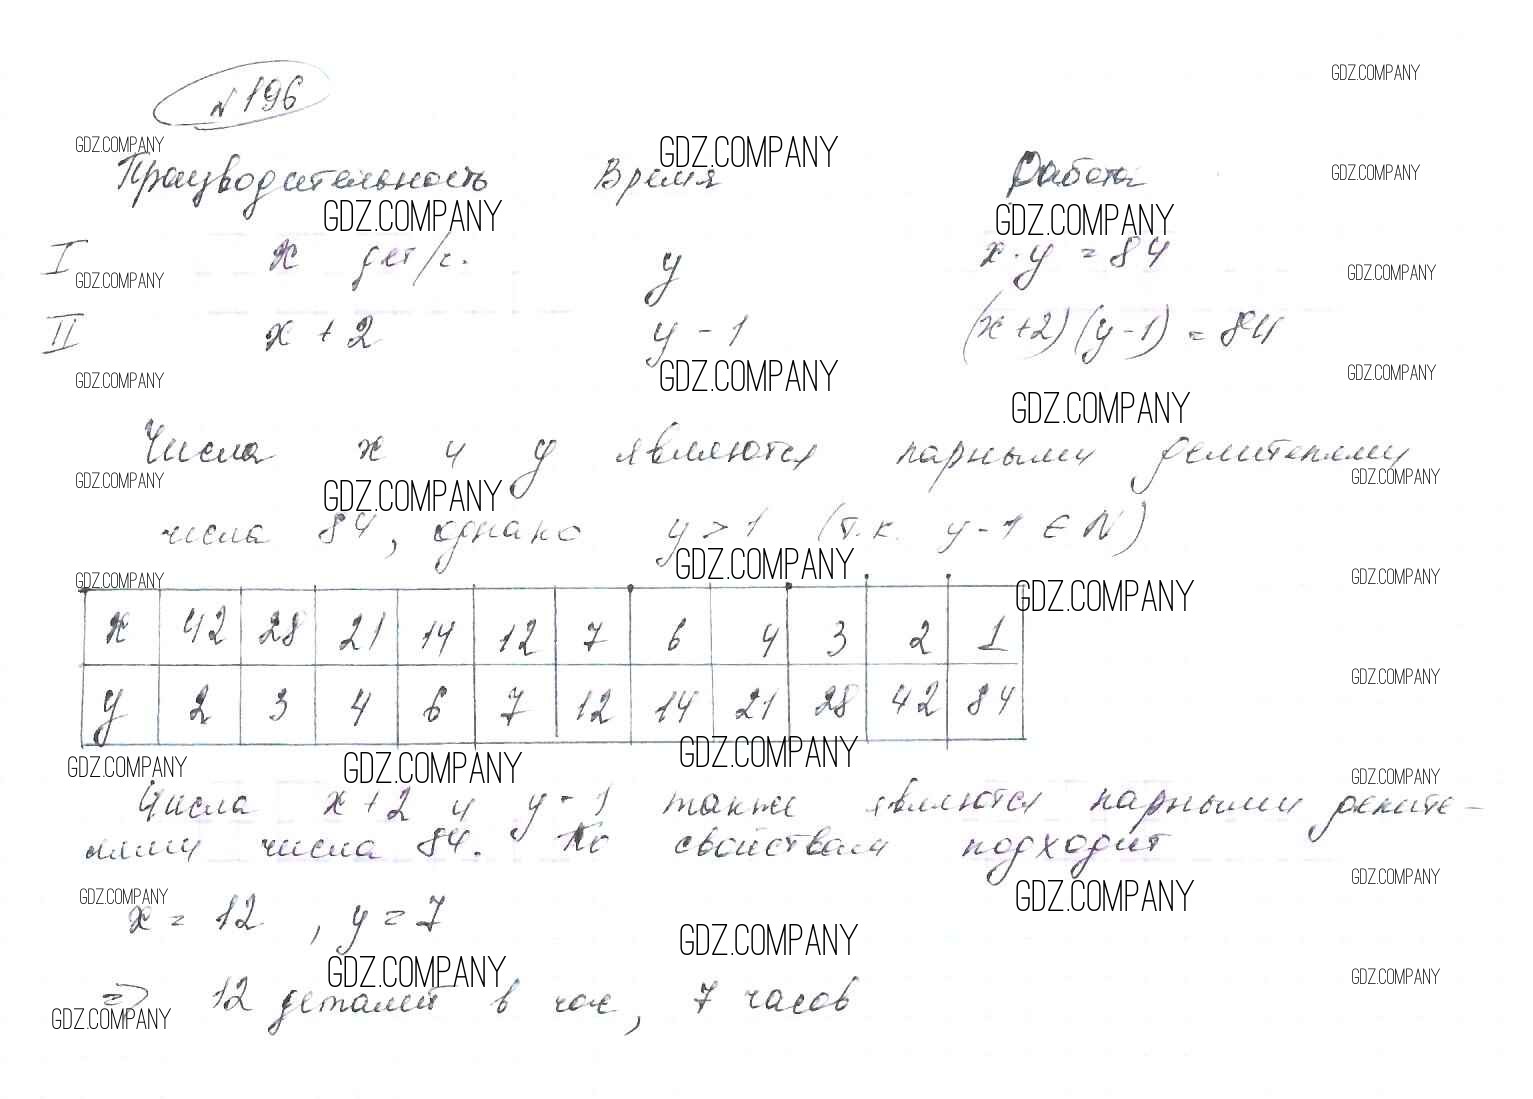 GDZ.COMPANY
№196
GDZ.COMPANY GDZ.COMPANY
Производительность Время Работа GDZ.COMPANY
GDZ.COMPANY GDZ.COMPANY
I x дет/ч. y x·y = 84
GDZ.COMPANY GDZ.COMPANY
II x + 2 y - 1 (x+2)(y-1) = 84
GDZ.COMPANY GDZ.COMPANY GDZ.COMPANY
GDZ.COMPANY
Числа x и y являются парными делителями
GDZ.COMPANY GDZ.COMPANY GDZ.COMPANY
числа 84, однако y > 1 (т.к. y-1 ∈ N)
GDZ.COMPANY GDZ.COMPANY GDZ.COMPANY GDZ.COMPANY
x 42 28 21 14 12 7 6 4 3 2 1
GDZ.COMPANY
y 2 3 4 6 7 12 14 21 28 42 84
GDZ.COMPANY GDZ.COMPANY GDZ.COMPANY GDZ.COMPANY
Числа x+2 и y-1 также являются парными делите-
лями числа 84. По свойствам подходит
GDZ.COMPANY GDZ.COMPANY GDZ.COMPANY
x = 12 , y = 7
GDZ.COMPANY
GDZ.COMPANY GDZ.COMPANY
=> 12 деталей в час, 7 часов
GDZ.COMPANY